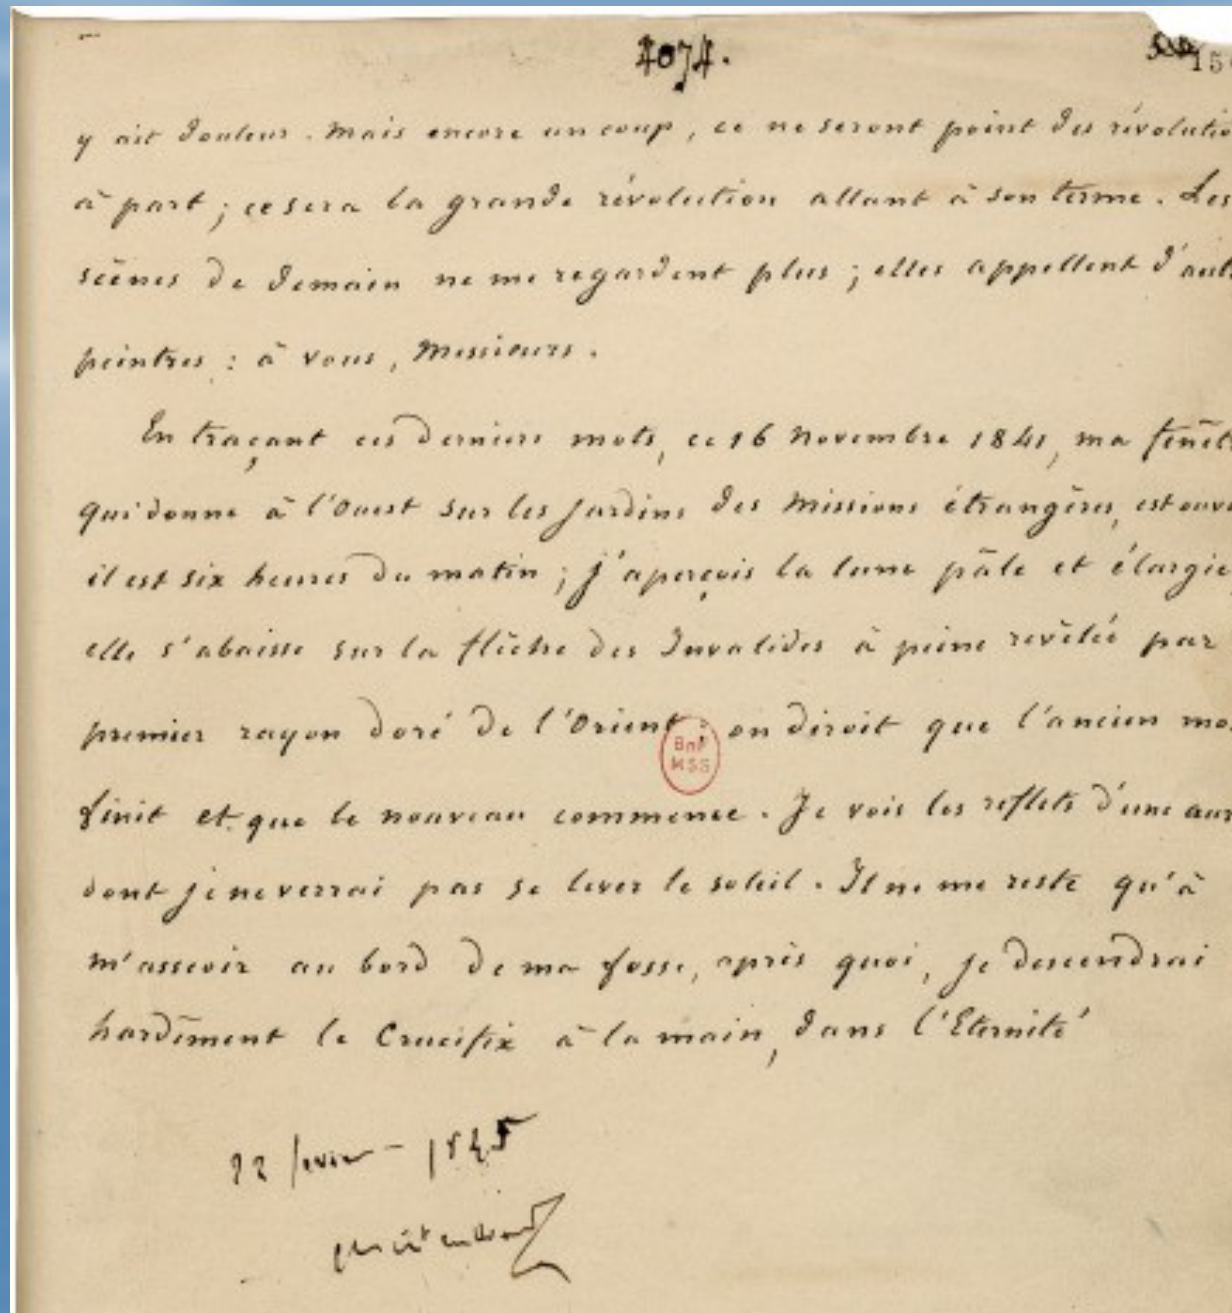 4074.
150
y ait douleur. Mais encore un coup, ce ne seront point des révolutio
à part ; ce sera la grande révolution allant à son terme. Les
scènes de demain ne me regardent plus ; elles appellent d'aut
peintres : à vous, Messieurs.
En traçant ces derniers mots, ce 16 Novembre 1841, ma fenêt
qui donne à l'Ouest sur les jardins des Missions étrangères, est ouve
il est six heures du matin ; j'aperçois la lune pâle et élargie
elle s'abaisse sur la flèche des Invalides à peine révélée par
premier rayon doré de l'Orient : on diroit que l'ancien mo
finit et que le nouveau commence. Je vois les reflets d'une aur
dont je ne verrai pas se lever le soleil. Il ne me reste qu'à
m'asseoir au bord de ma fosse, après quoi, je descendrai
hardiment le Crucifix à la main, dans l'Eternité
BnF
MSS
22 fevrier - 1845
Chateaubriand